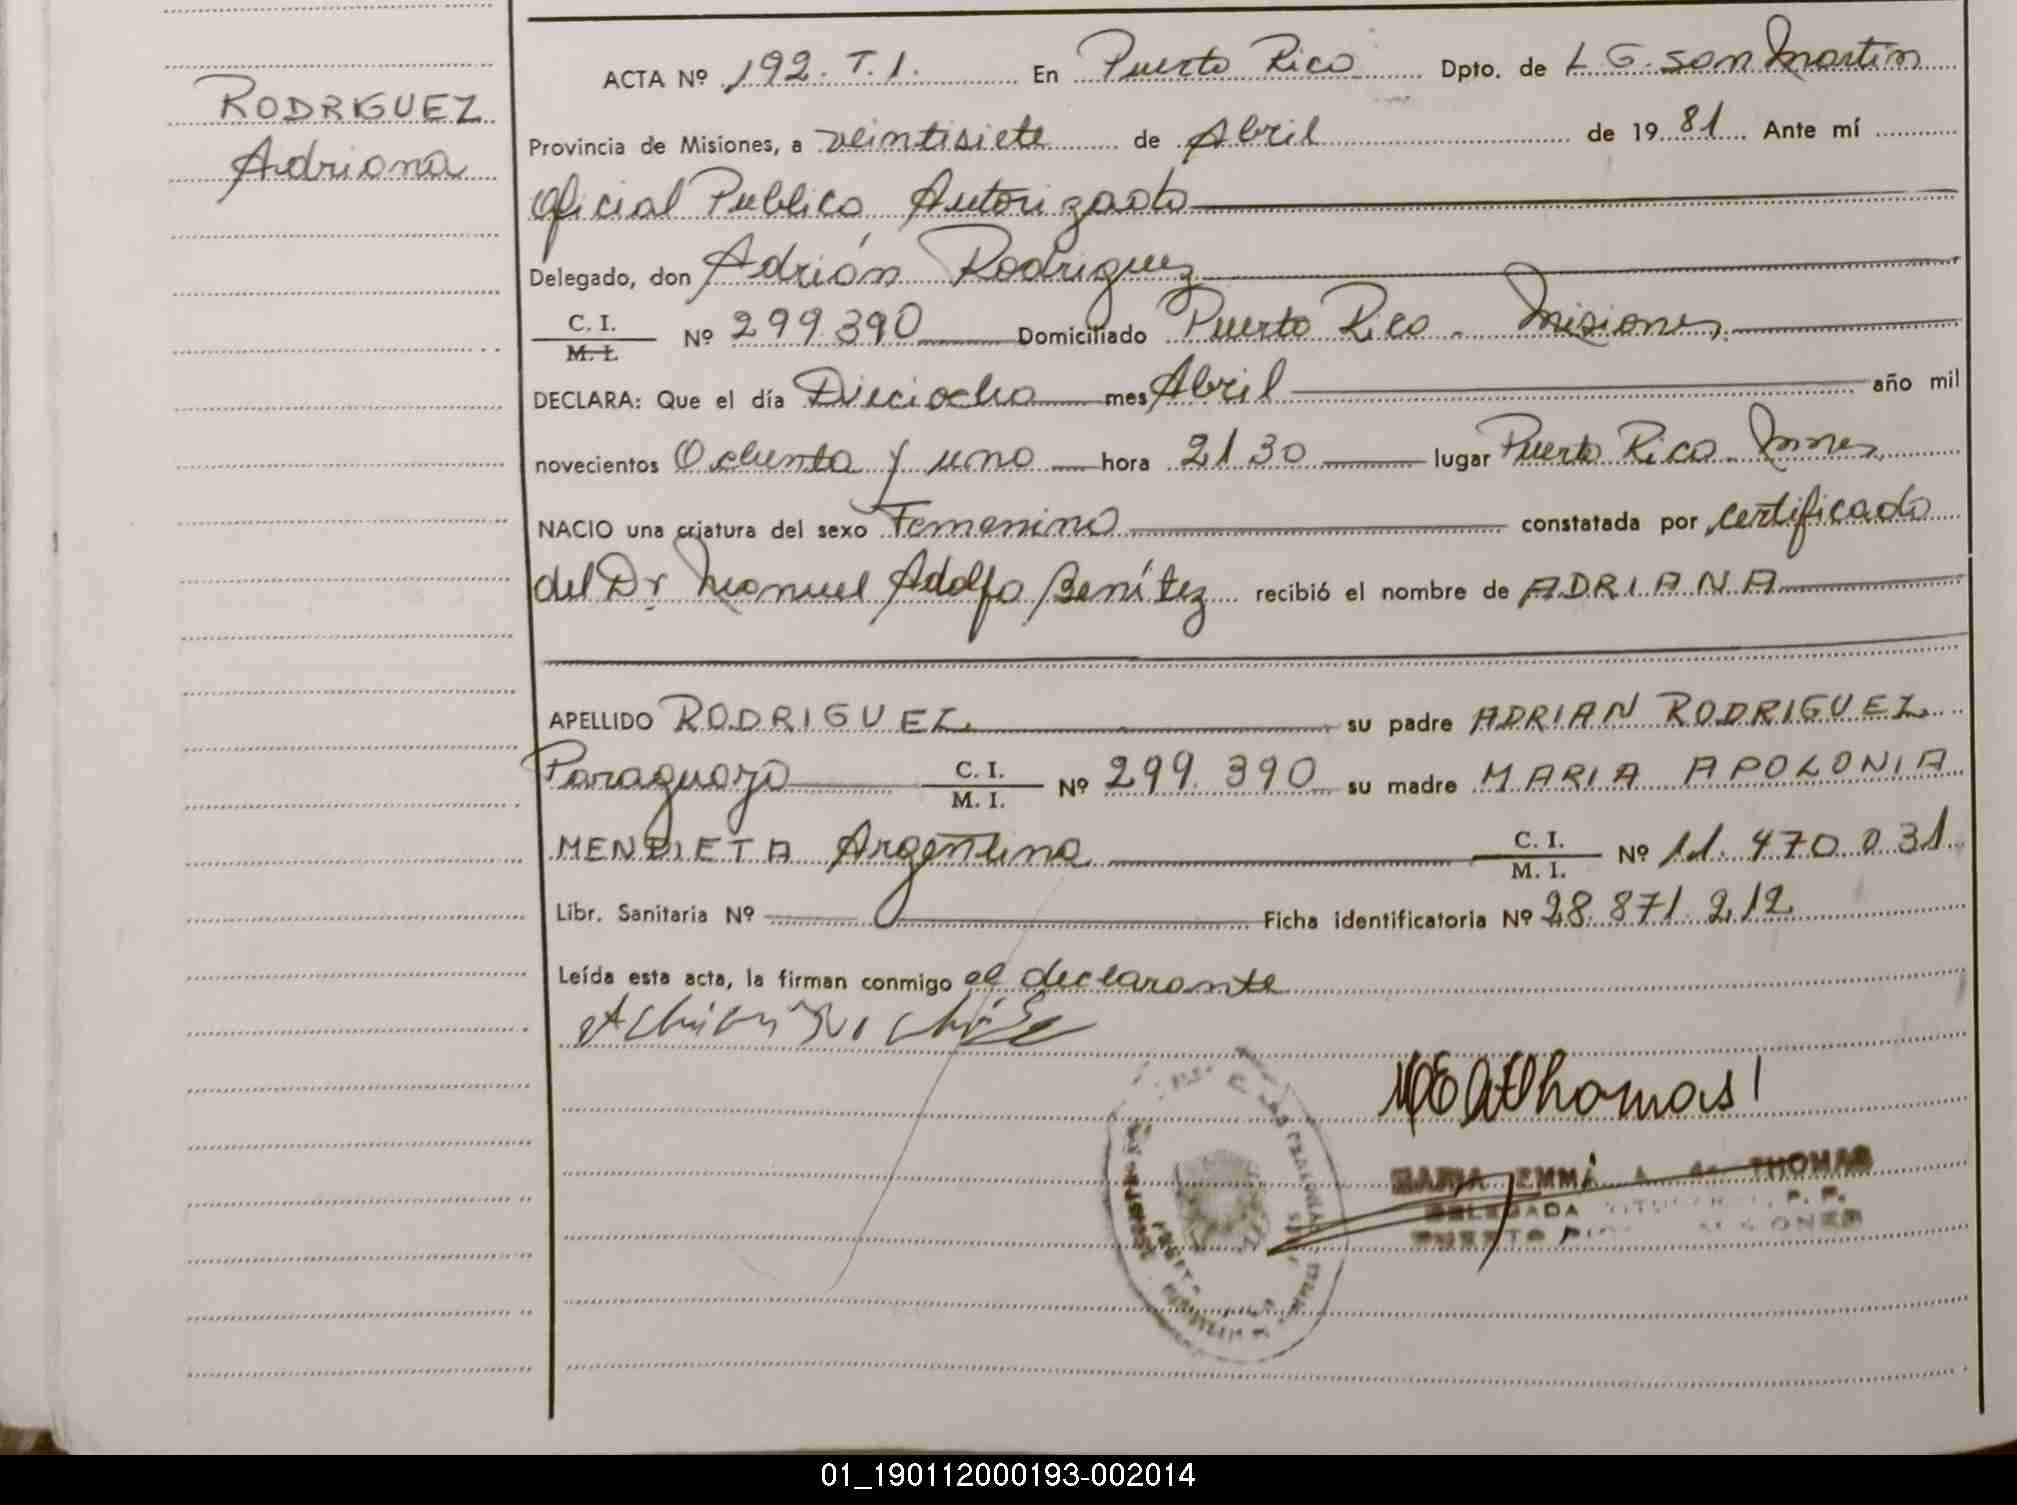 RODRIGUEZ
Adriana
ACTA Nº 192. T.1. En Puerto Rico Dpto. de L G. San Martín
Provincia de Misiones, a veintisiete de Abril de 1981 Ante mí
Oficial Publico Autorizado
Delegado, don Adrián Rodriguez
C. I.
M. I. Nº 299.390 Domiciliado Puerto Rico - Misiones
DECLARA: Que el día Dieciocho mes Abril año mil
novecientos Ochenta y uno hora 21 30 lugar Puerto Rico - Mnes
NACIO una criatura del sexo Femenino constatada por certificado
del Dr. Manuel Adolfo Benítez recibió el nombre de ADRIANA
APELLIDO RODRIGUEZ su padre ADRIAN RODRIGUEZ
Paraguayo C. I.
M. I. Nº 299.390 su madre MARIA APOLONIA
MENDIETA Argentina C. I.
M. I. Nº 11.470.031
Libr. Sanitaria Nº Ficha identificatoria Nº 28.871.212
Leída esta acta, la firman conmigo el declarante
MEAThomas
MARIA EMMA A. de THOMAS
DELEGADA
PUERTO RICO MISIONES
01_190112000193-002014